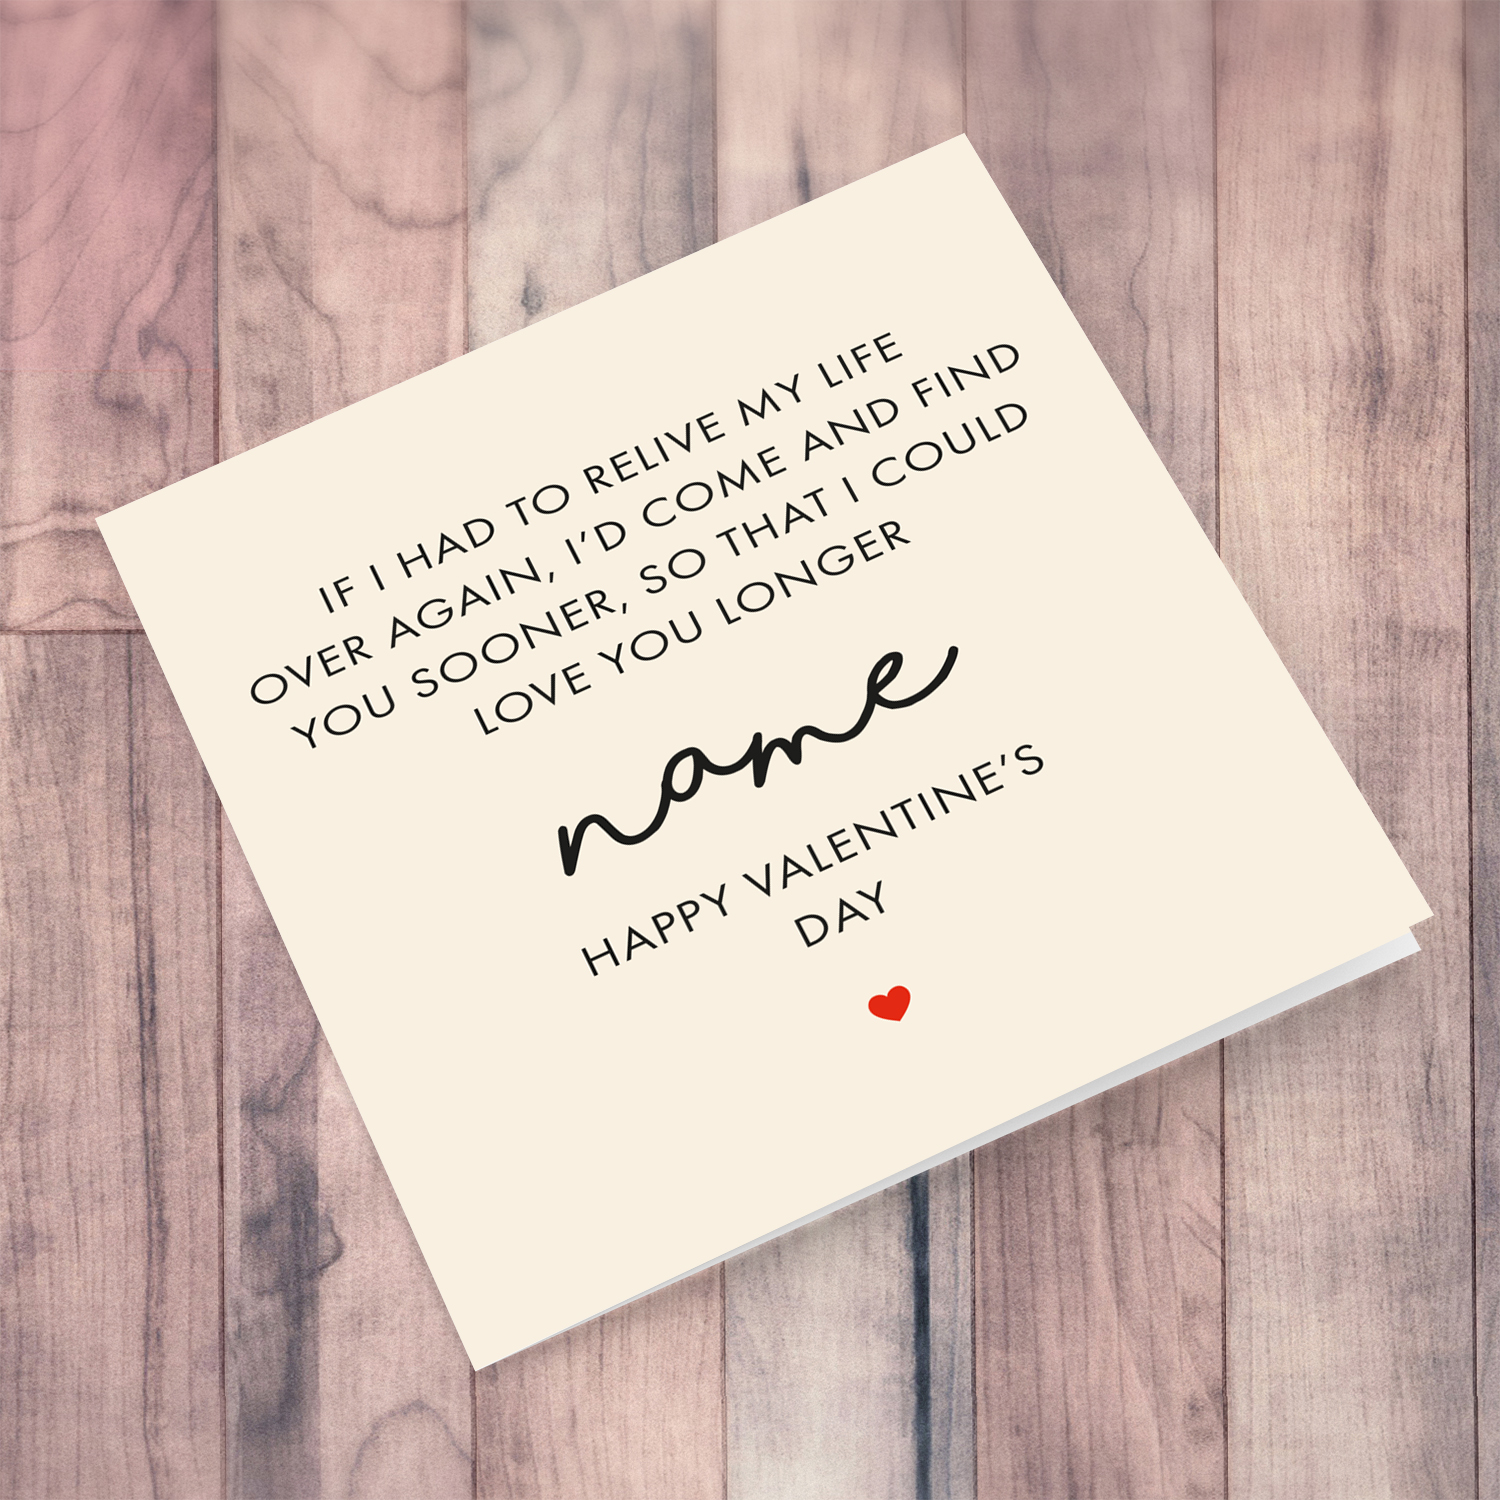 IF I HAD TO RELIVE MY LIFE
OVER AGAIN, I’D COME AND FIND
YOU SOONER, SO THAT I COULD
LOVE YOU LONGER
name
HAPPY VALENTINE’S
DAY